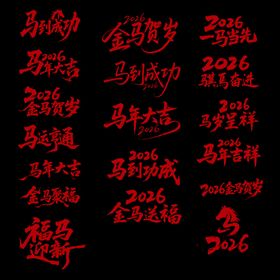 马到成功
2026
马年大吉
2026
金马贺岁
马运亨通
马年大吉
金马聚福
福马
迎新
2026
金马贺岁
马到成功
马年大吉
2026
2026
马到功成
2026
金马送福
2026
一马当先
2026
骐馬奋进
2026
马岁呈祥
2026
马年吉祥
2026金马贺岁
2026